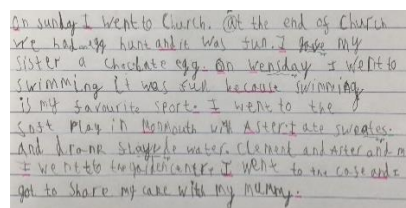 On sunday I went to Church. At the end of Church
we had egg hunt and it was fun. I gave my
sister a Choclate egg. On wensday I went to
swimming it was fun because swimming
is my favourite sport. I went to the
soft play in Monmouth with Aster I ate sweates.
and drank water. Clement and Aster and
I went to the I went to the and I
got to share my cake with my mummy.